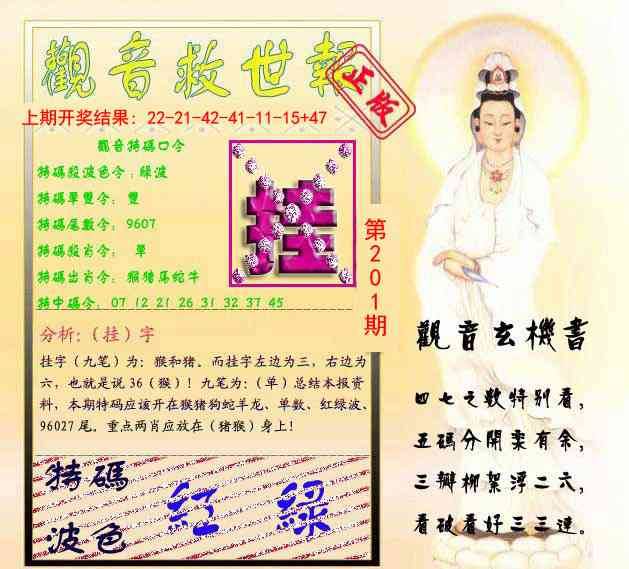 觀音救世報
正版
上期开奖结果：22-21-42-41-11-15+47
觀音特碼口令
特碼殺波色令：綠波
特碼單雙令： 雙
特碼尾數令：9607
特碼殺肖令： 單
特碼出肖令： 猴猪马蛇牛
特中碼令：07 12 21 26 31 32 37 45
挂
第201期
分析:（挂）字
挂字（九笔）为：猴和猪。而挂字左边为三，右边为
六，也就是说 36（猴）！九笔为：（单）总结本报资
料，本期特码应该开在猴猪狗蛇羊龙、单数、红绿波、
96027 尾。重点两肖应放在（猪猴）身上！
特碼
波色
紅 綠
觀音玄機書
四七之数特别看，
五碼分開栾有余，
三瓣柳絮浮二六，
看破看好三三連。